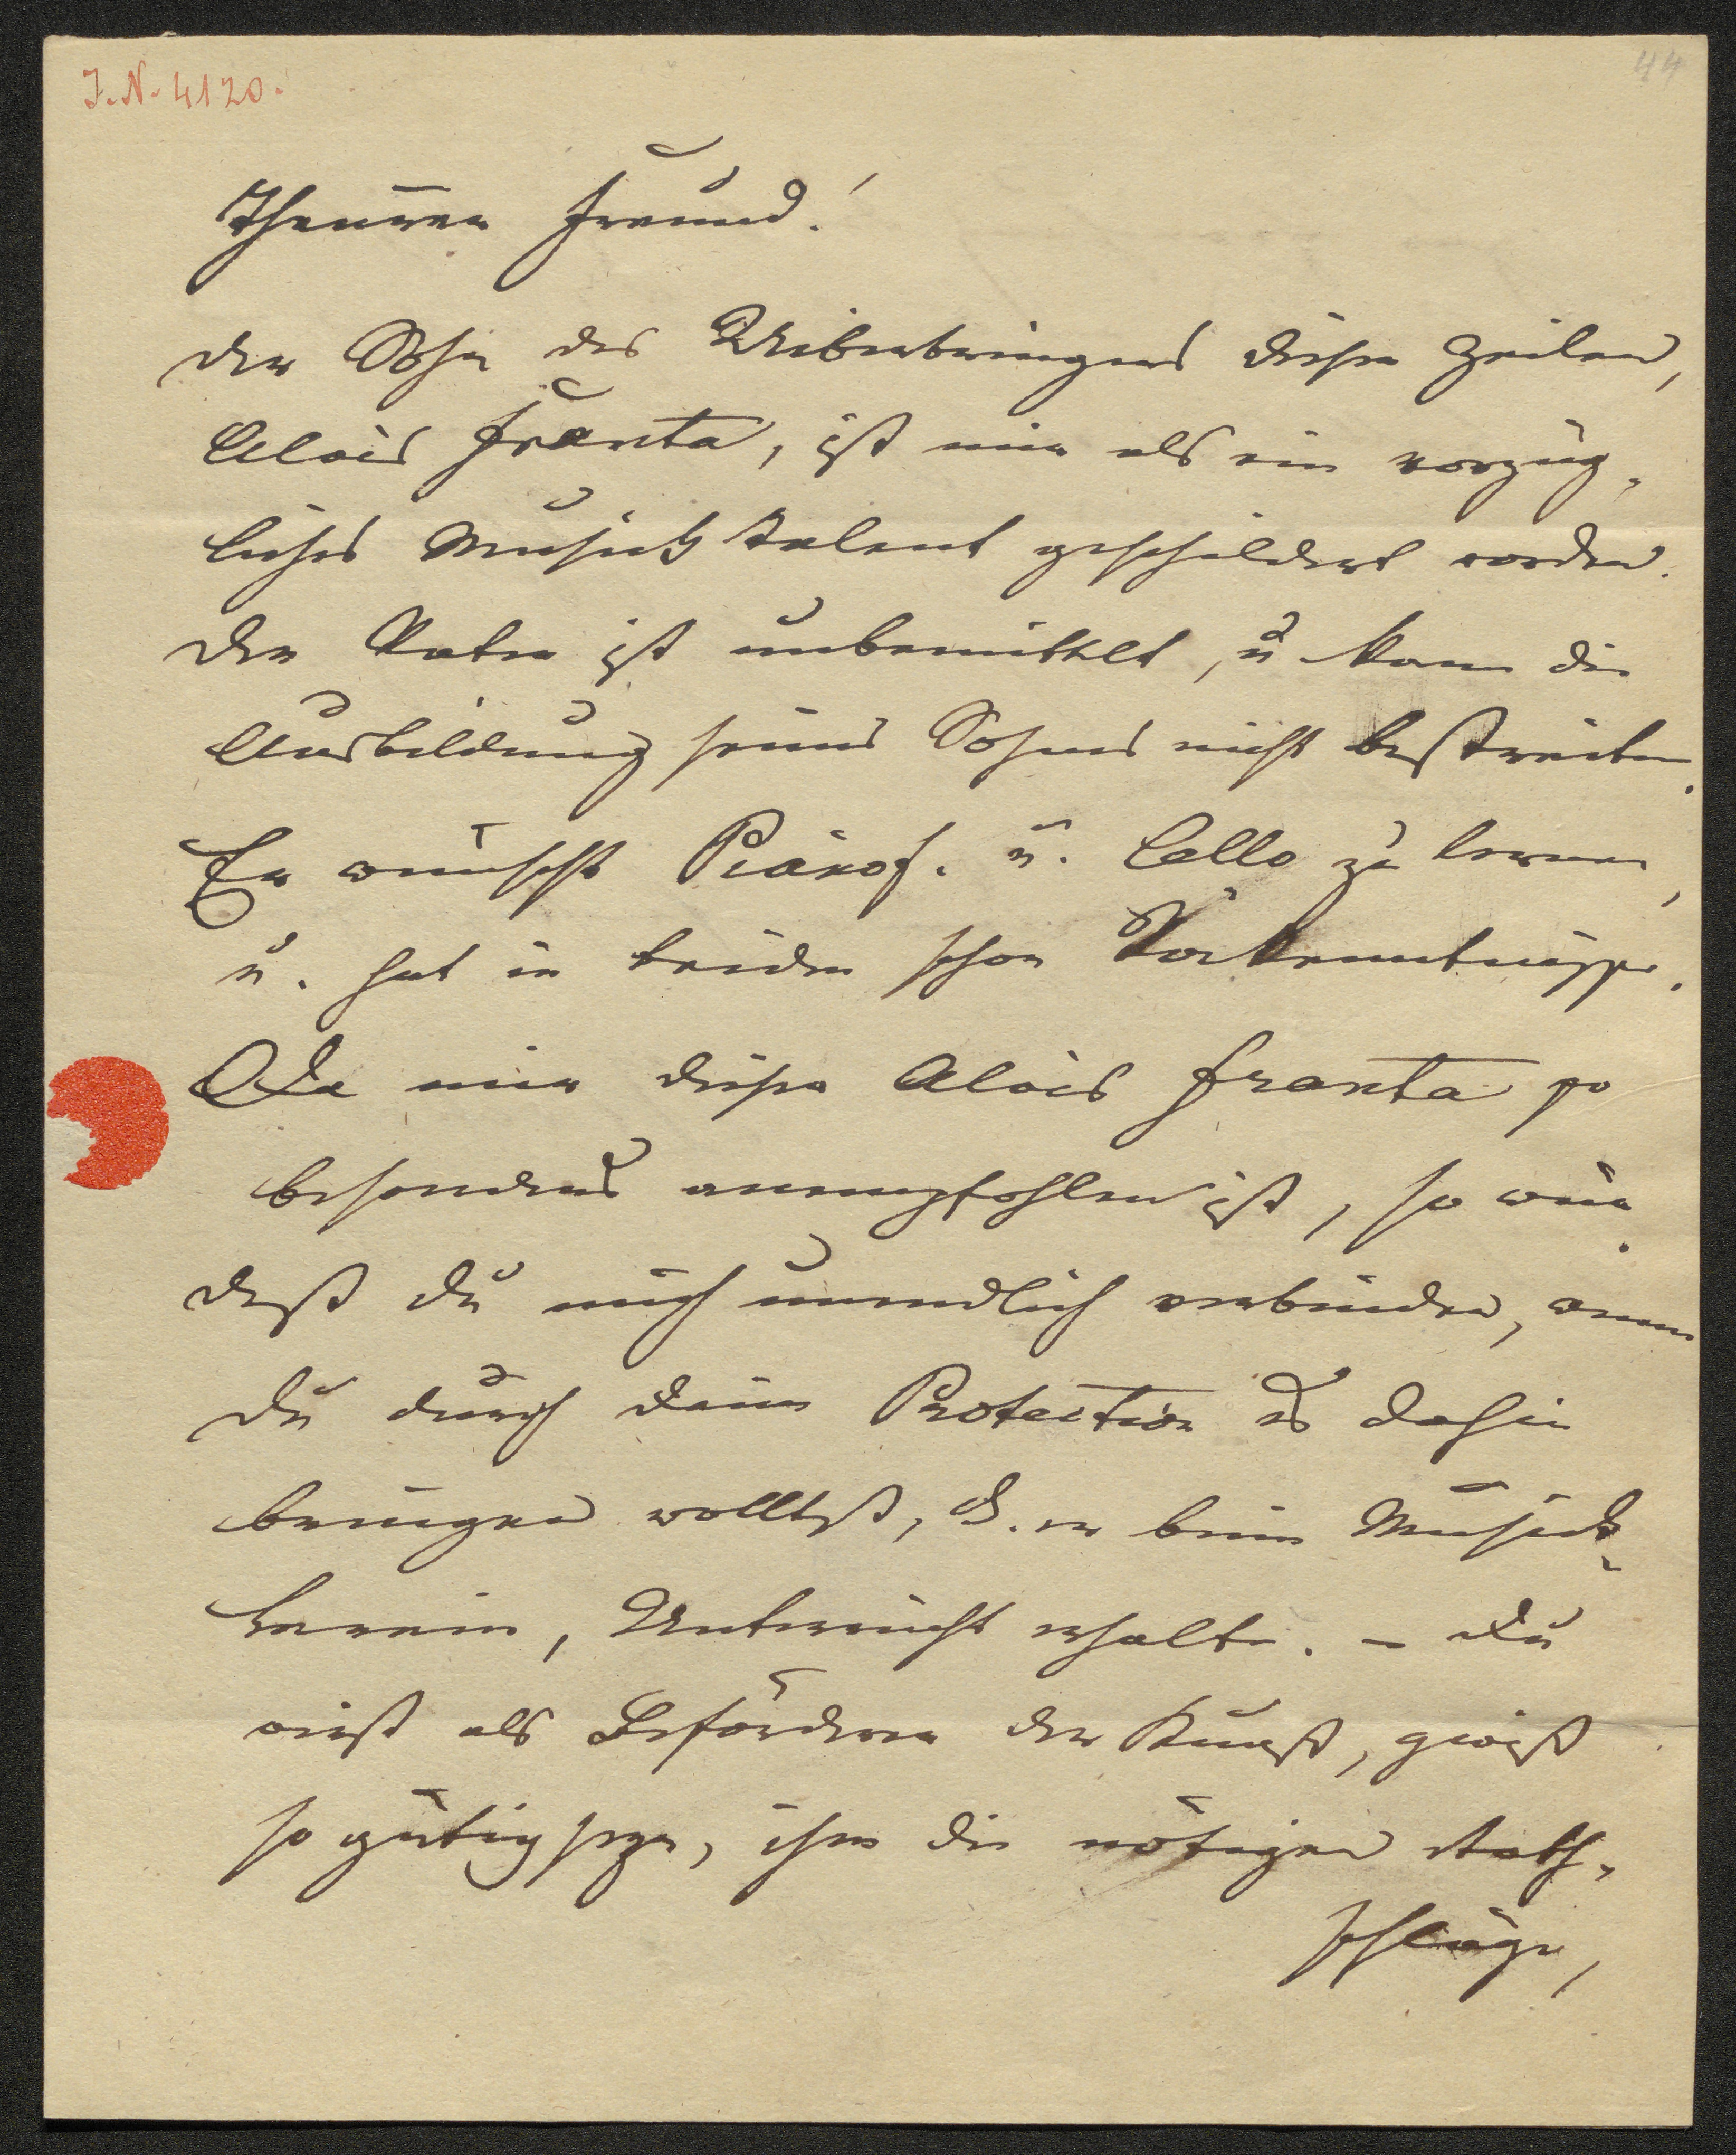 J.N. 4120.
44
Theurer Freund!
Der Sohn des Uiberbringers dieser Zeilen,
Alois Franta, ist mir als ein vorzüg-
liches Musick Talent geschildert worden.
Der Vater ist unbemittelt, u kann die
Ausbildung seines Sohnes nicht bestreiten.
Er wünscht Pianof. u. Cello zu lernen,
u. hat in beiden schon Vorkenntnisse.
Da mir dieser Alois Franta so
besonders anempfohlen ist, so wür-
dest du mich unendlich verbinden, wenn
du durch deine Protection es dahin
bringen wolltest, d. er beim Musick-
Verein, Unterricht erhalte. – Du
wirst als Beförderer der Kunst, gewiß
so gütig seyn, ihm die nötigen Rath-
schläge,